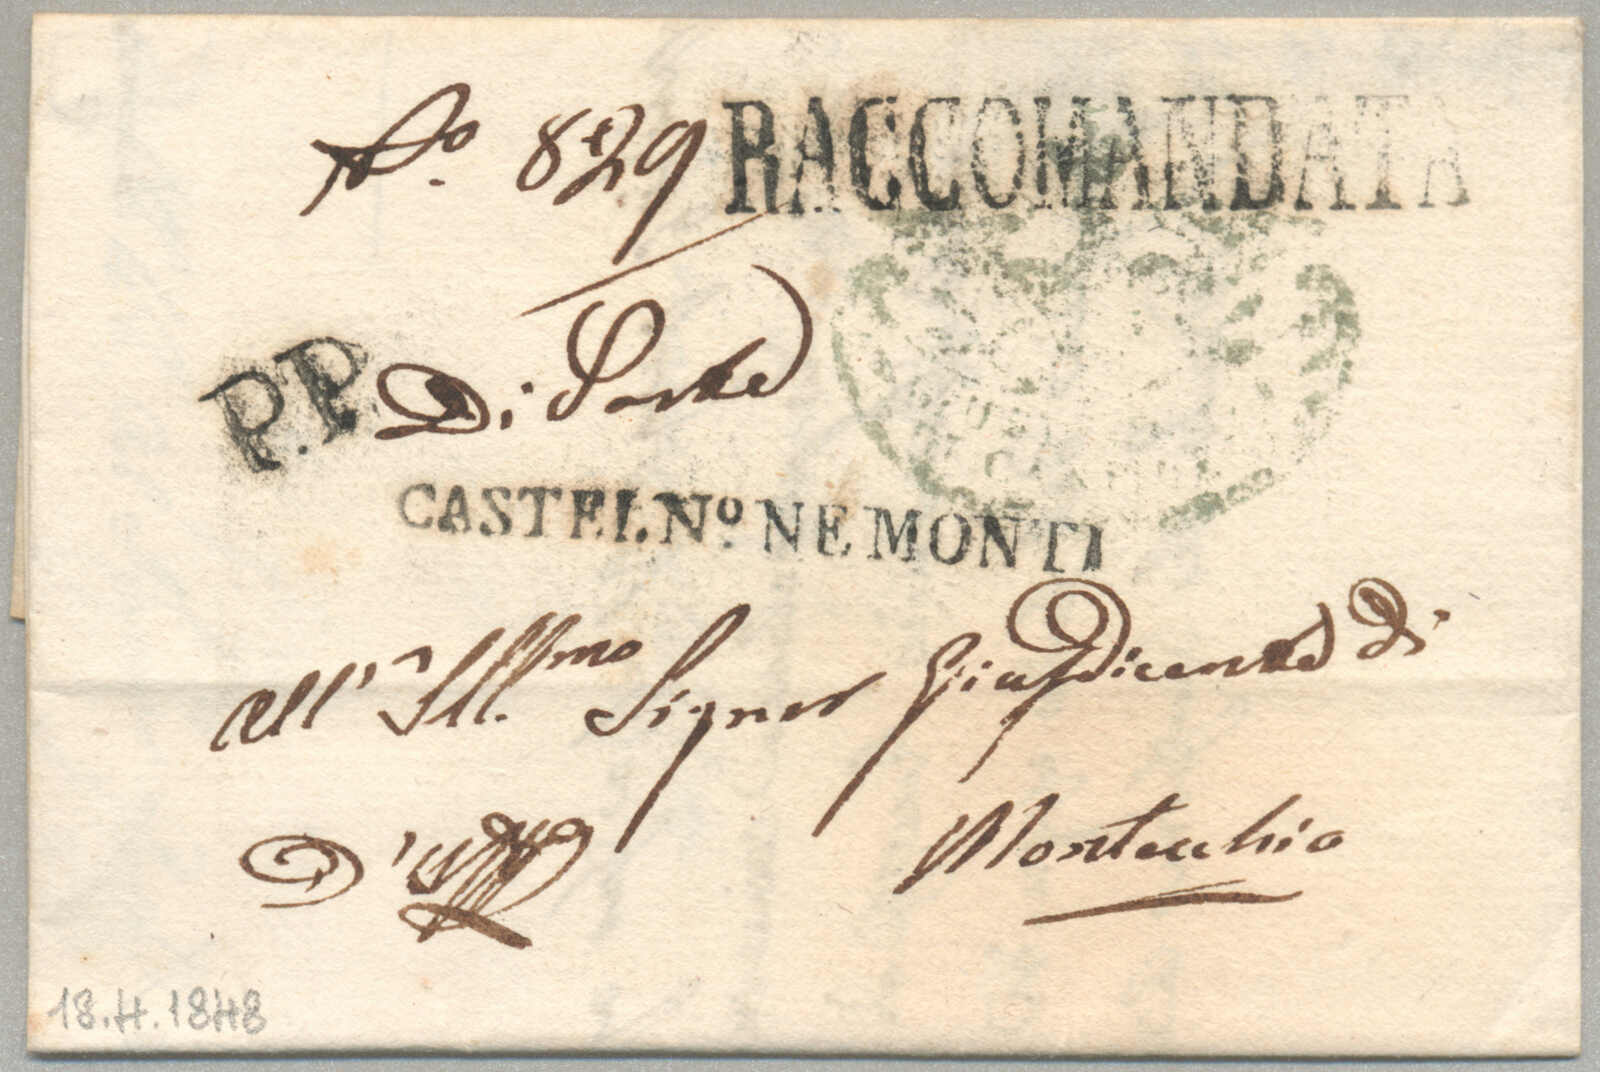 No. 829 RACCOMANDATA
P.P. Di Parte
CASTEL.Nº. NE MONTI
All' Ill.mo Signor Giusdicente di
D'Uffo Montecchio
18.4.1848